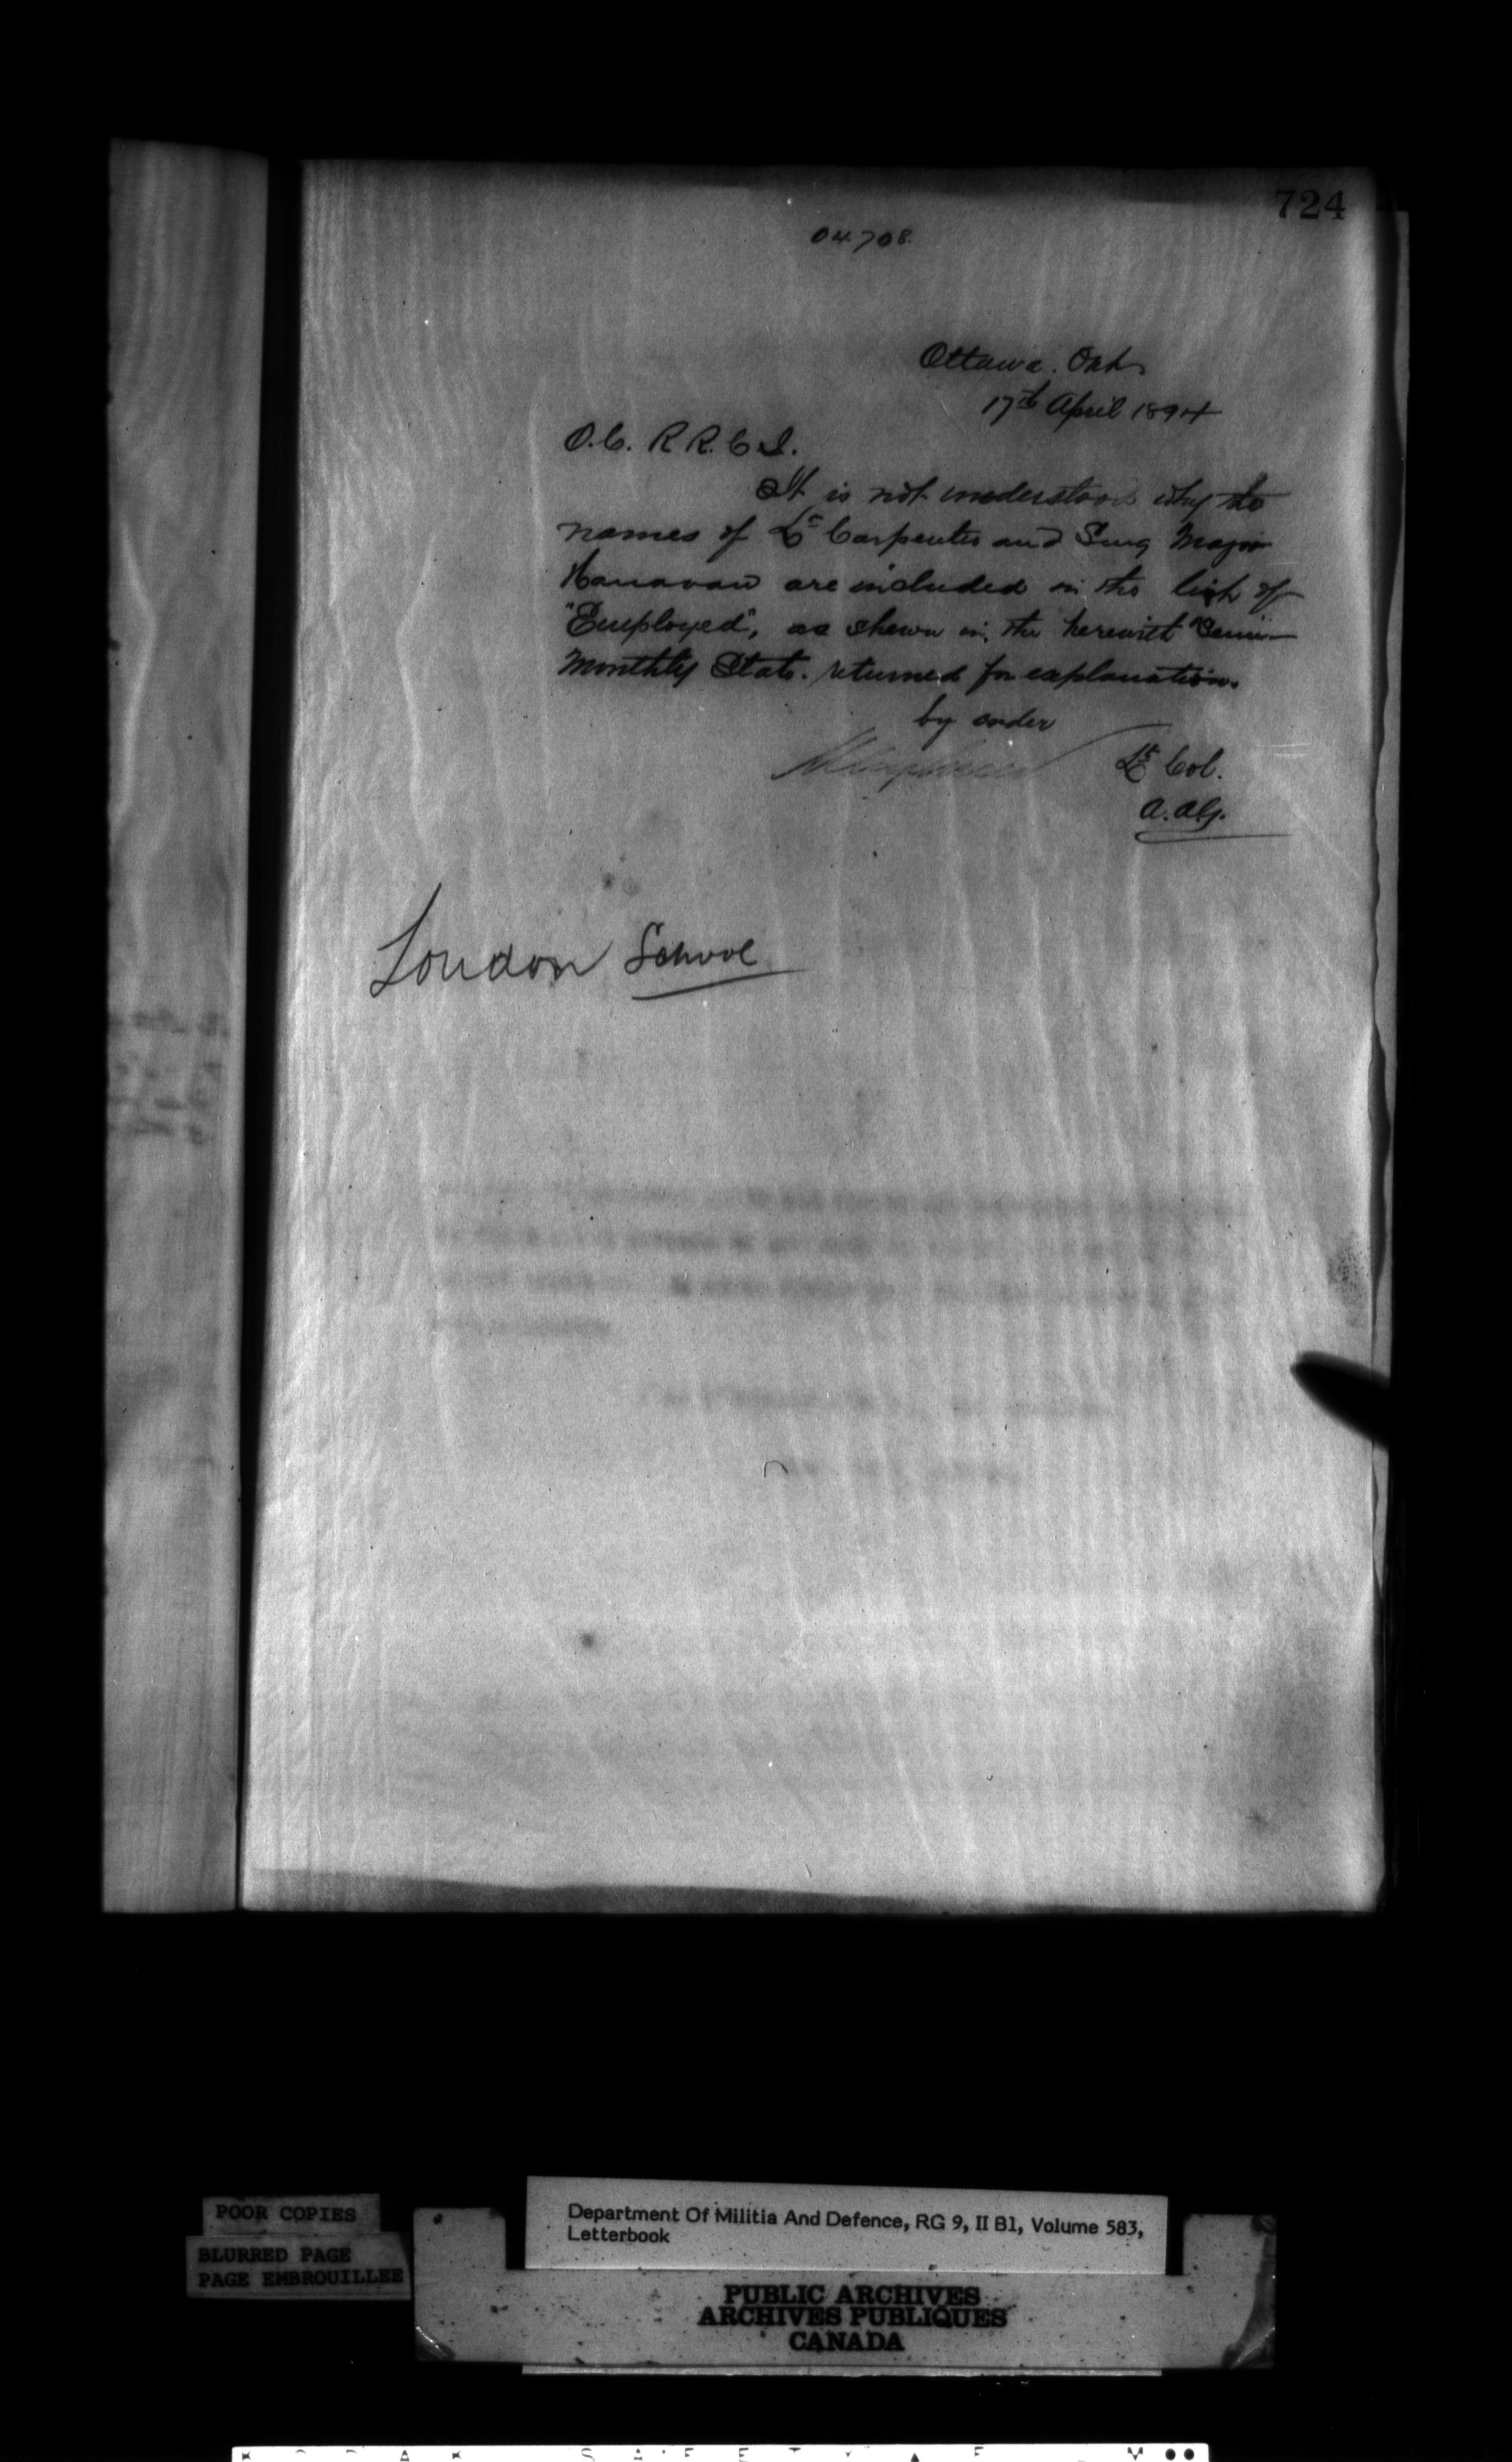 724
04708.
Ottawa. Ont.
17th April 1894
O.C. R.R.C.I.
It is not understood why the
names of Lt Carpenter and Surg Major
Hanavan are included in the list of
"Employed", as shewn in the herewith "Semi-
Monthly State. returned for explanation.
by order
Lt Col.
A.A.G.
London School
POOR COPIES
BLURRED PAGE
PAGE EMBROUILLEE
Department Of Militia And Defence, RG 9, II B1, Volume 583,
Letterbook
PUBLIC ARCHIVES
ARCHIVES PUBLIQUES
CANADA